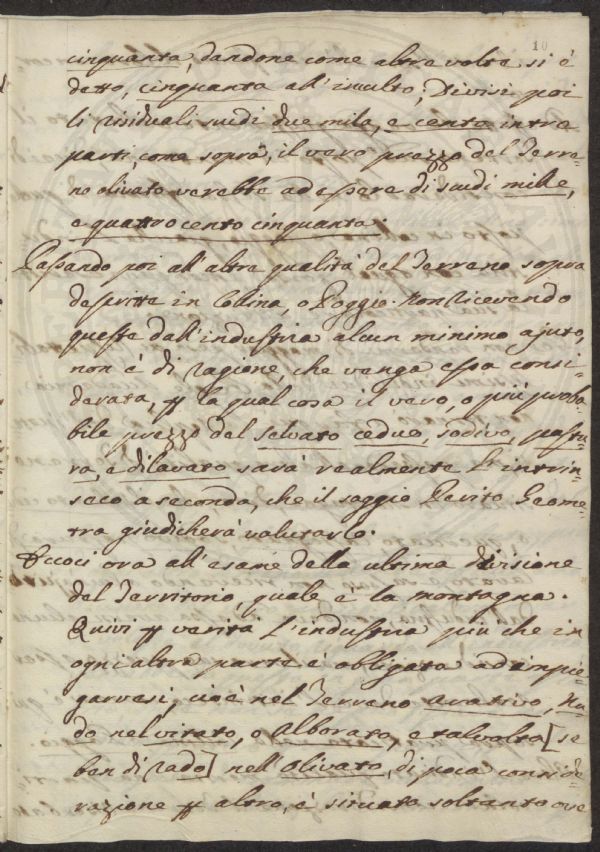 10
cinquanta, dandone come altre volte si è
detto, cinquanta all'inculto; Divisi poi
li risiduali scudi due mila, e cento in tre
parti, come sopra, il vero prezzo del Terre=
no olivato verebbe ad essere di scudi mille,
e quattrocento cinquanta.
Passando poi all'altra qualità del Terreno sopra
descritte in Collina, o Poggio. Non ricevendo
queste dall'industria alcun minimo ajuto,
non è di ragione, che venga essa consi=
derata, per la qual cosa il vero, o più proba=
bile prezzo del selvato ceduo, sodivo, pastu=
ra, e dilavato sarà realmente l'intrin=
seco a seconda, che il saggio Perito Geome=
tra giudicherà valutarlo.
Eccoci ora all'esame della ultima divisione
del Territorio, quale è la montagna.
Quivi per verità l'industria più che in
ogni altra parte è obligata ad impie=
garvesi, cioè nel Terreno arativo, Nu=
do nel vitato, o Alborato, e talvolta [se
ben di rado] nell'olivato, di poca conside=
razione per altro, è situato soltanto ove